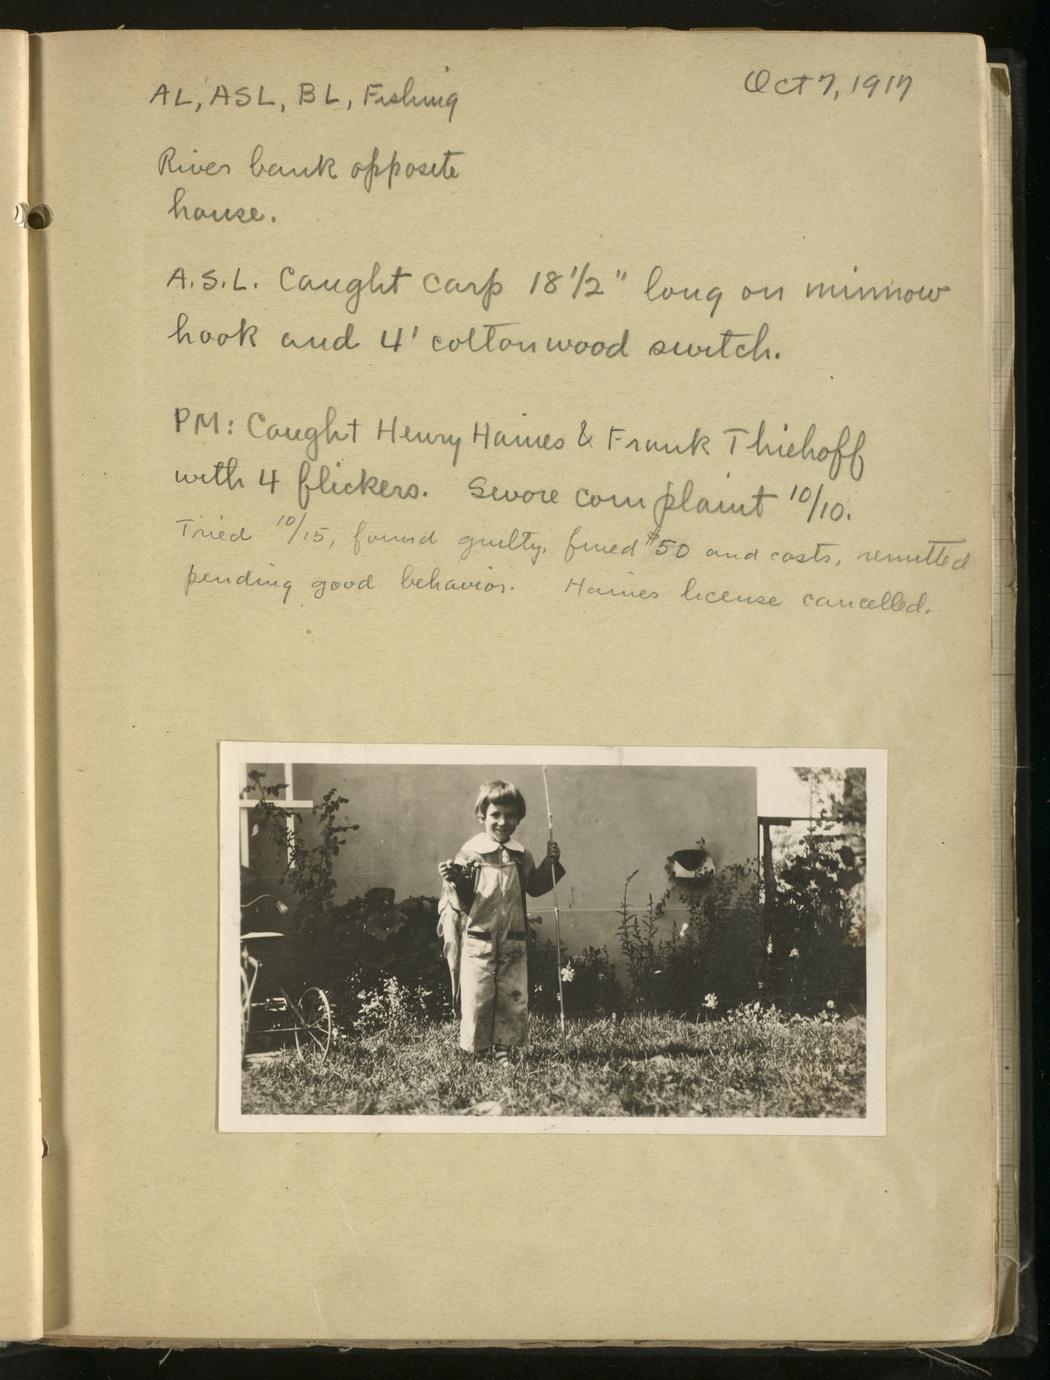 AL, ASL, BL, Fishing
Oct 7, 1917
River bank opposite
house.
A.S.L. Caught carp 18 1/2" long on minnow
hook and 4' cottonwood switch.
PM: Caught Henry Haines & Frank Thiehoff
with 4 flickers. Swore complaint 10/10.
Tried 10/15, found guilty, fined $50 and costs, remitted
pending good behavior. Haines license cancelled.